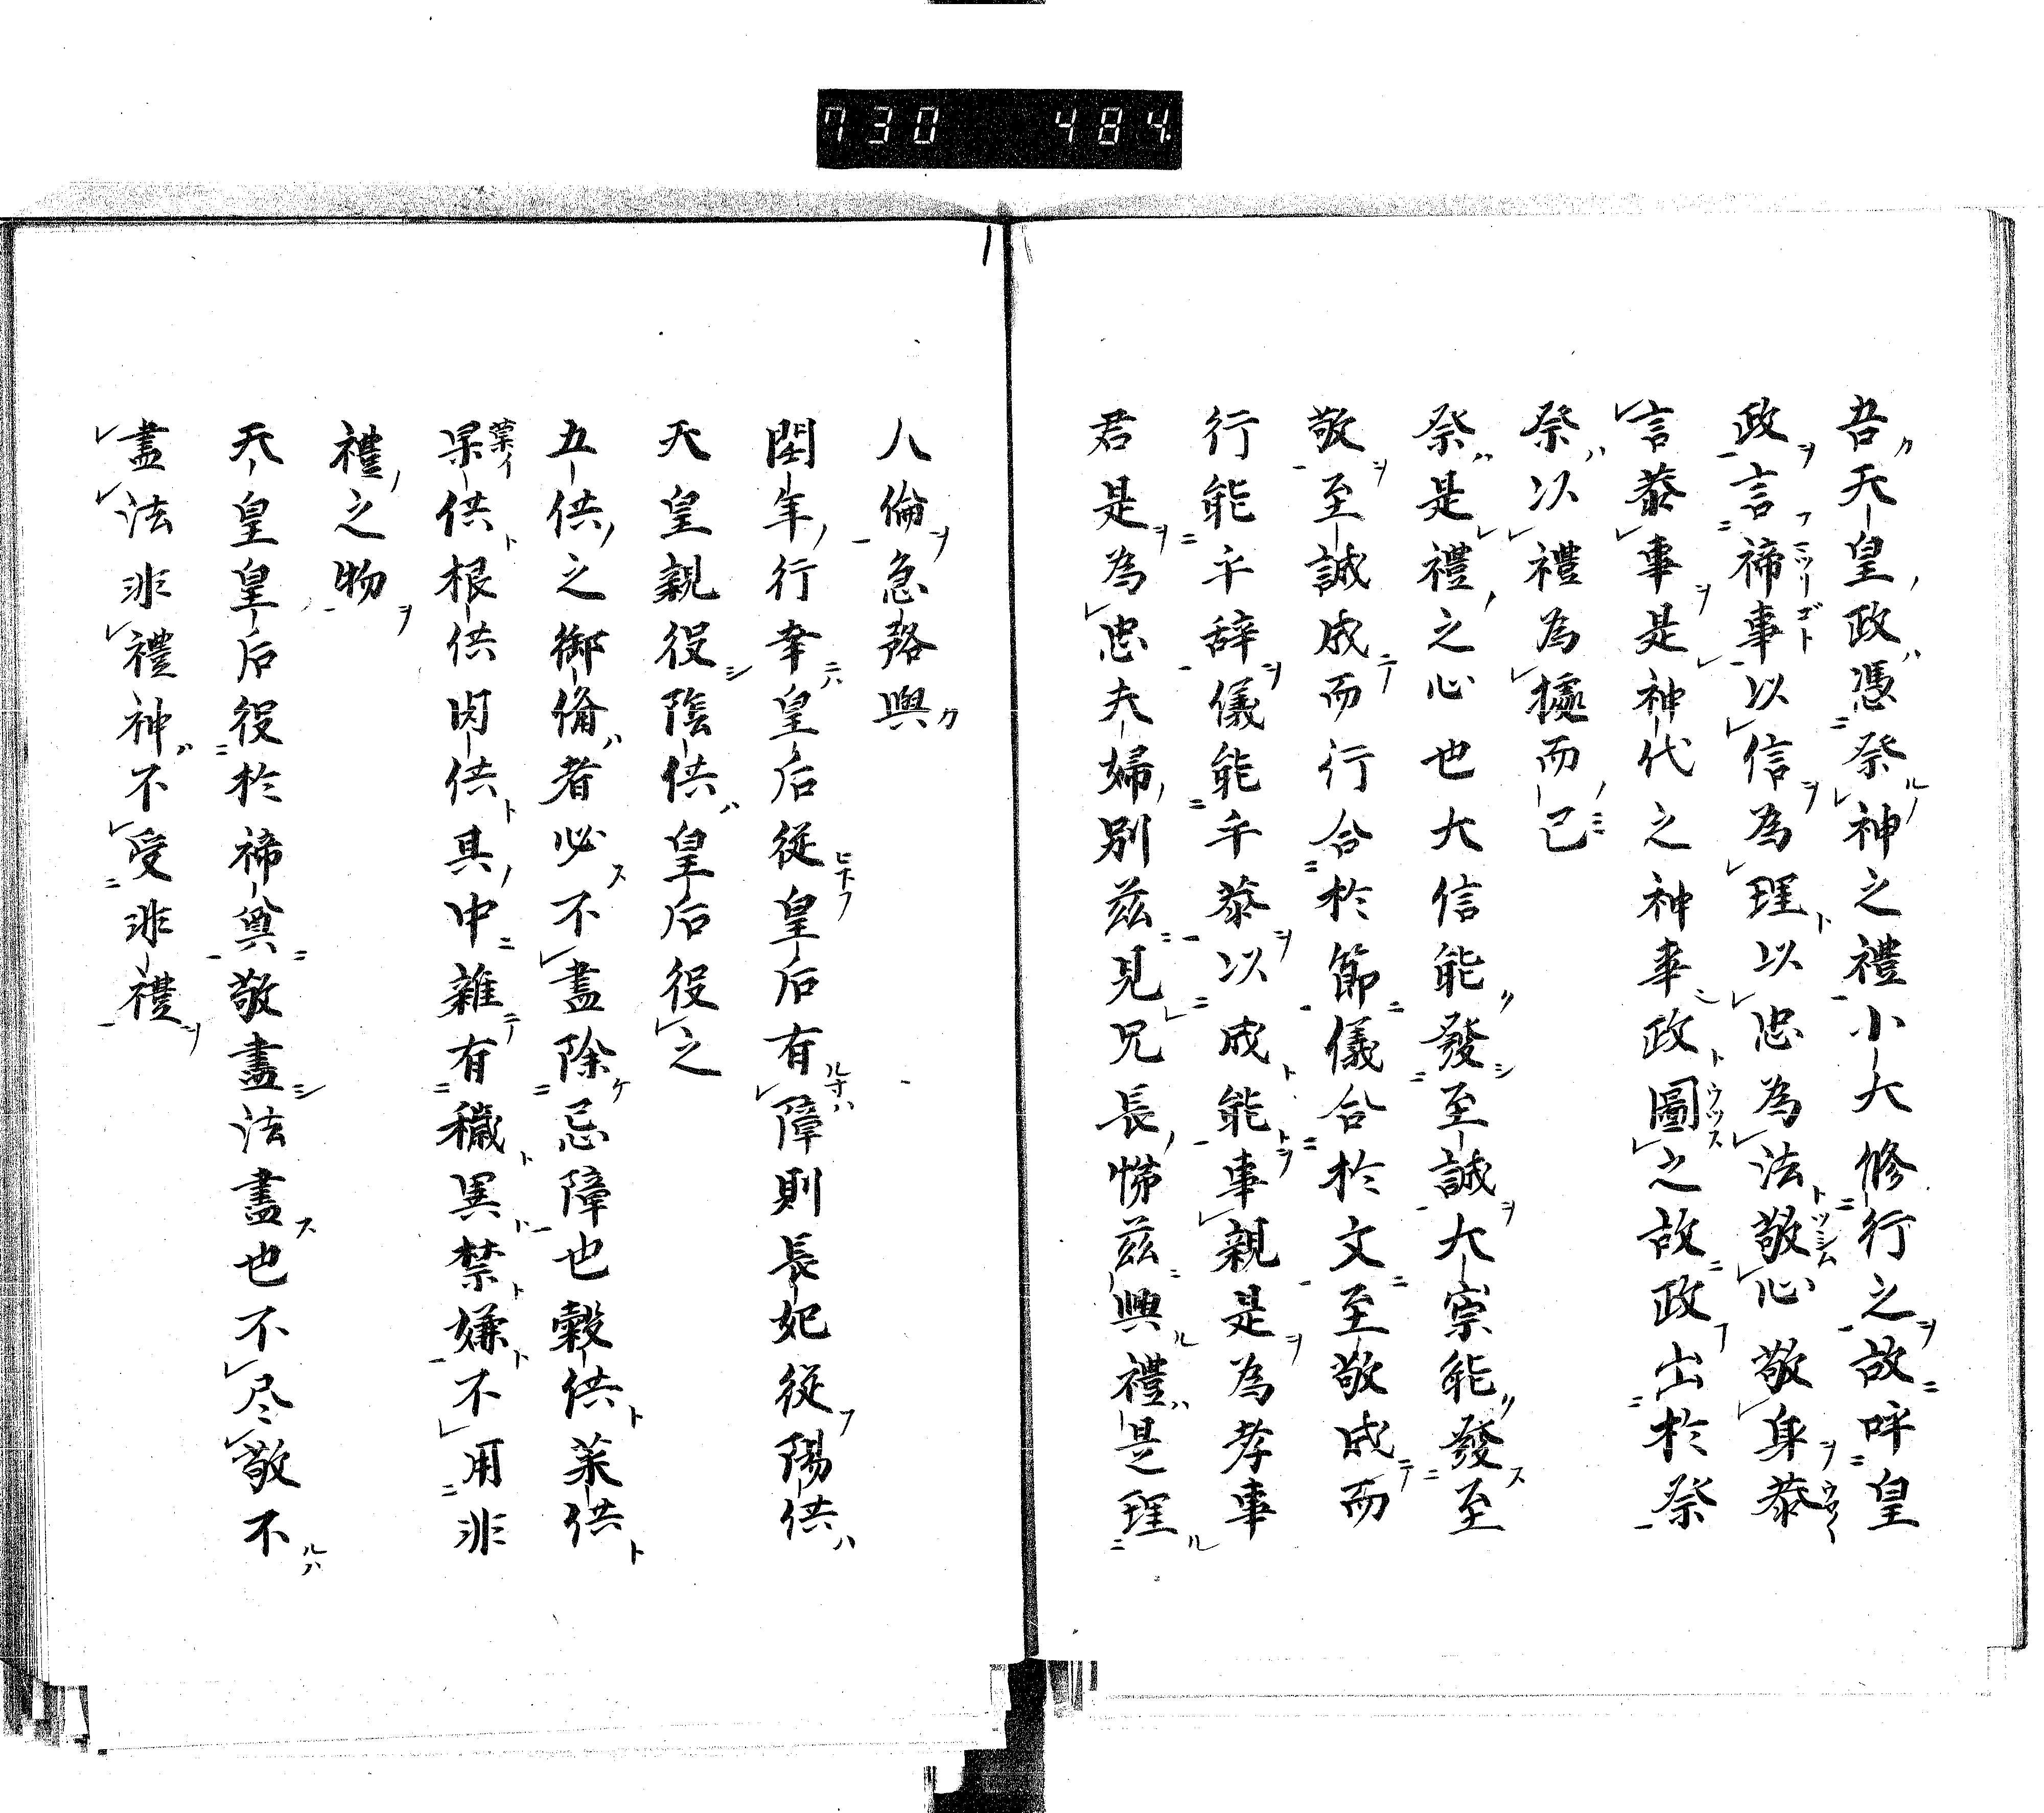 730 484
吾天皇政憑祭神之禮小大修行之故呼皇
政言禘事以信為理以忠為法敬心敬身恭
言恭事是神代之神事政圖之故政出於祭
祭以禮為據而已
祭是禮之心也大信能發至誠大宗能發至
敬至誠成而行合於節儀合於文至敬成而
行能乎辞儀能乎恭以成能事親是為孝事
君是為忠夫婦別茲見兄長悌茲興禮是理
人倫急務興
閏年行幸皇后從皇后有障則長妃從陽供
天皇親役陰供皇后役之
五供之御脩者必不盡除忌障也穀供菜供
果供根供肉供其中雜有穢異禁嫌不用非
禮之物
天皇皇后役於禘奠敬盡法盡也不尽敬不
盡法非禮神不受非禮